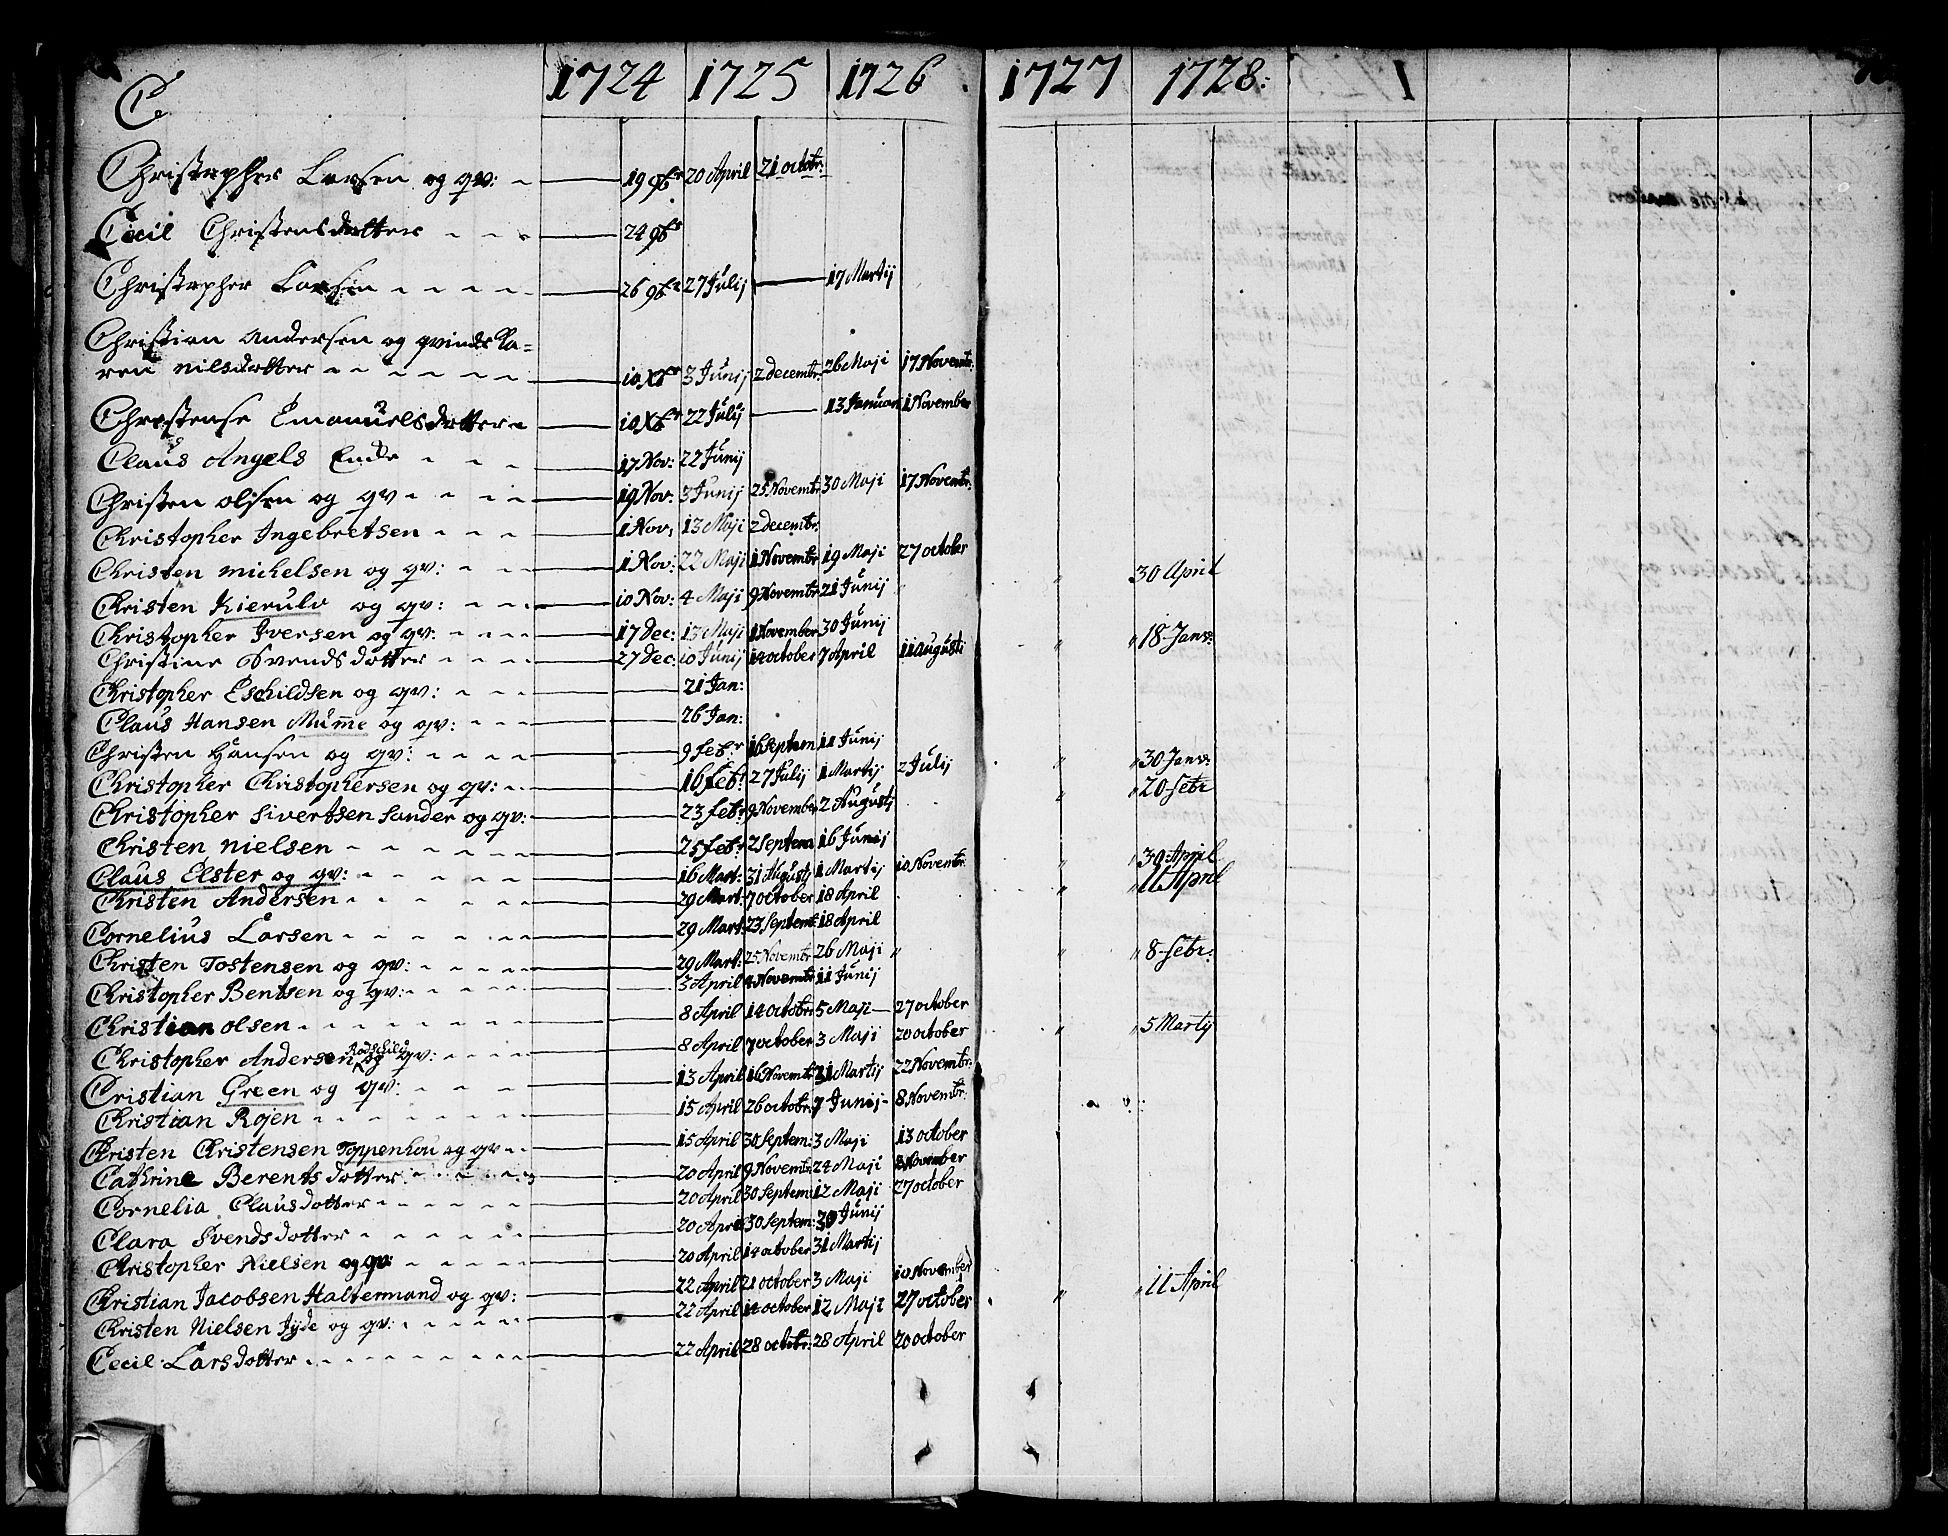 C. 1724 1725 1726 1727 1728:
Christopher Larsen og qv: 19 9br 20 April 21 octobr:
Cecil Christensdatter 24 9br
Christopher Larsen 26 9br 27 Julij 17 Martij
Christian Andersen og qvinde Ka=
ren nilsdatter 10 Xbr 3 Junij 2 decembr: 26 Maji 17 Novembr:
Christense Emanuelsdatter 10 Xbr 22 Julij 13 Januar 1 November
Claus Angels Enke 17 Nov: 22 Junij
Christen olsen og qv 19 Nov: 3 Junij 25 Novembr 30 Maji 17 Novembr:
Christopher Ingebretsen 1 Nov: 13 Maji 2 decembr:
Christen michelsen og qv: 1 Nov: 22 Maji 1 Novembr 19 Maji 27 october " 30 April
Christen Kierulv og qv: 10 Nov: 4 Maji 9 Novembr 21 Junij "
Christopher Iversen og qv: 17 Dec: 13 Maji 1 November 30 Junij " " 18 Janv:
Christine Svends dotter 27 Dec: 10 Junij 14 october 7 April 11 augusti
Christopher Eschildsen og qv: 21 Jan:
Claus Hansen Mumme og qv: 26 Jan:
Christen Hansen og qv: 9 febr 16 Septem 11 Junij " " 30 Janv:
Christopher Christophersen og qv: 16 febr 27 Julij 1 Martij 2 Julij " " 20 febr
Christopher Sivertsen Sander og qv: 23 febr 9 November 2 Augusti
Christen nielsen 25 febr 2 Septem 16 Junij " " 30 April
Claus Elster og qv: 16 Mart: 31 Augusti 1 Martij 10 Novembr: " " 11 April
Christen Andersen 29 Mart: 7 october 18 April
Cornelius Larsen 29 Mart: 23 Septem: 18 April
Christen Tostensen og qv: 29 Mart: 25 Novembr 26 Maji " " " 8 febr:
Christopher Bentsen og qv: 3 April 4 Novembr 11 Junij
Christian olsen 8 April 14 octobr: 5 Maji 27 october " " 5 Martij
Christopher Andersen Rodschild og qv: 8 April 7 october 3 Maji 20 october
Cristian Green og qv: 13 April 16 Novembr 11 Martij 22 Novembr:
Christian Rojen 15 April 26 octobr: 7 Junij 8 Novembr:
Christen Christensen Toppenhou og qv 15 April 30 Septem: 3 Maji 13 october
Cathrine Berents dotter 20 April 9 Novembr: 24 Maji November
Cornelia Clausdotter 20 April 30 Septem: 12 Maji 27 october
Clara Svendsdotter 20 April 30 Septem: 30 Junij
Christopher Nielsen og qv: 20 April 14 october 31 Martij
Christian Jacobsen Haltermand og qv: 22 April 21 october 3 Maji 10 November " " 11 April
Christen Nielsen Jyde og qv: 22 April 14 october 12 Maji 27 october
Cecil: Larsdotter 22 April 28 octobr: 28 April 20 october